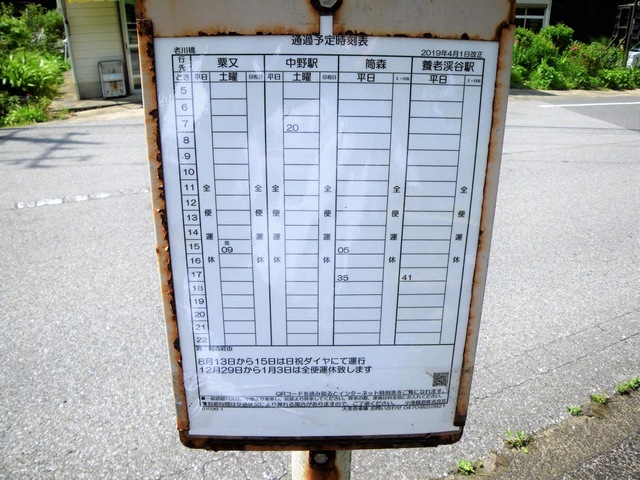 通過予定時刻表
老川橋 2019年4月1日改正
行先 粟又 中野駅 筒森 養老渓谷駅
とき 平日 土曜 日祝日 平日 土曜 日祝日 平日 土・日祝 平日 土・日祝
5
6
7 20
8
9
10
11
12
13
14
15 09 05
16
17 35 41
18
19
20
21
22
全便運休 全便運休 全便運休 全便運休 全便運休 全便運休
8月13日から15日は日祝ダイヤにて運行
12月29日から1月3日は全便運休致します
QRコードを読み取るとインターネット時刻表をご覧になれます。
小湊鐵道株式会社